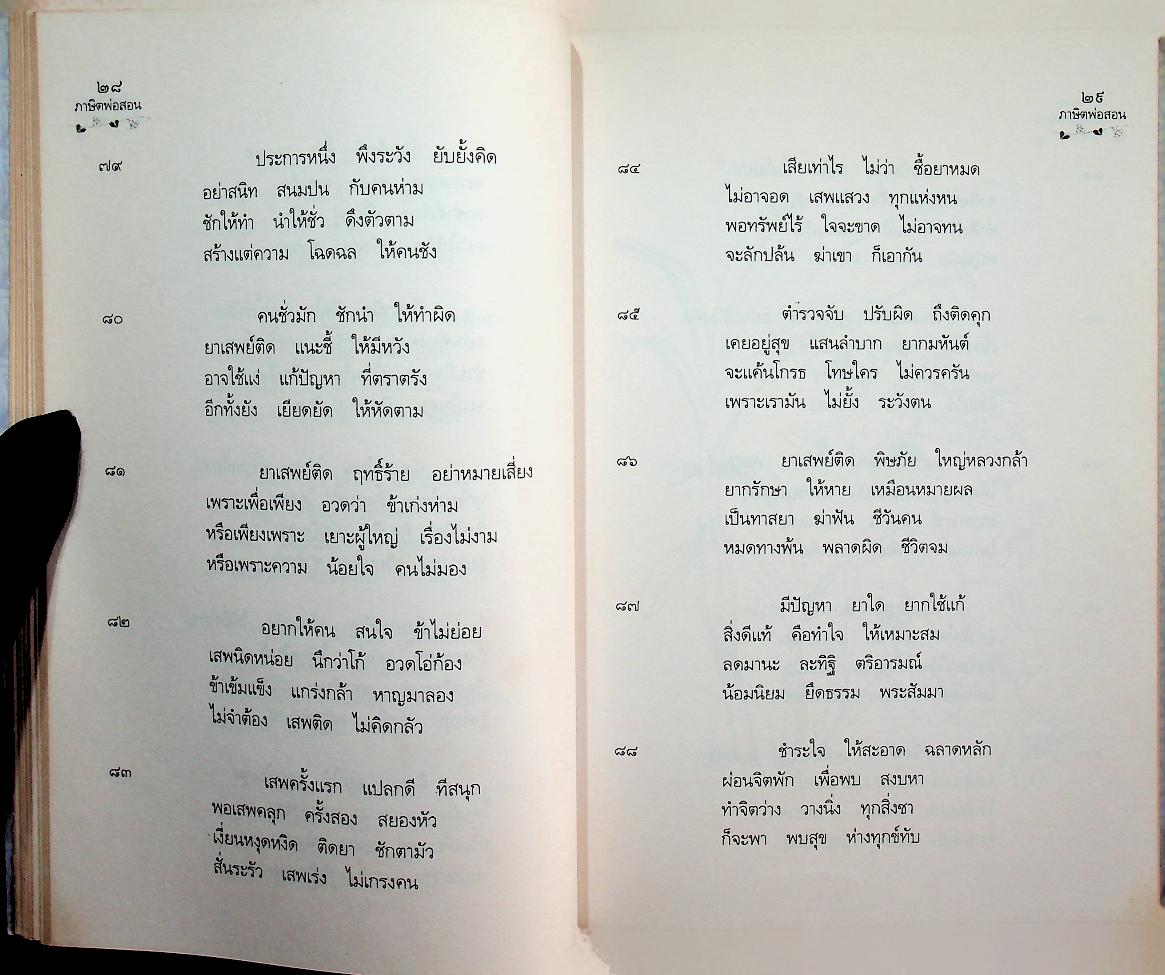 ๒๘
ภาษิตพ่อสอน
๗๙ ประการหนึ่ง พึงระวัง ยับยั้งคิด
อย่าสนิท สนมปน กับคนห่าม
ชักให้ทำ นำให้ชั่ว ดึงตัวตาม
สร้างแต่ความ โฉดฉล ให้คนชัง
๘๐ คนชั่วมัก ชักนำ ให้ทำผิด
ยาเสพย์ติด แนะชี้ ให้มีหวัง
อาจใช้แง่ แก้ปัญหา ที่ตราตรัง
อีกทั้งยัง เยียดยัด ให้หัดตาม
๘๑ ยาเสพย์ติด ฤทธิ์ร้าย อย่าหมายเสี่ยง
เพราะเพื่อเพียง อวดว่า ข้าเก่งห่าม
หรือเพียงเพราะ เยาะผู้ใหญ่ เรื่องไม่งาม
หรือเพราะความ น้อยใจ คนไม่มอง
๘๒ อยากให้คน สนใจ ข้าไม่ย่อย
เสพนิดหน่อย นึกว่าโก้ อวดโอ่ก้อง
ข้าเข้มแข็ง แกร่งกล้า หาญมาลอง
ไม่จำต้อง เสพติด ไม่คิดกลัว
๘๓ เสพครั้งแรก แปลกดี ทีสนุก
พอเสพคลุก ครั้งสอง สยองหัว
เงี่ยนหงุดหงิด ติดยา ชักตามัว
สั่นระรัว เสพเร่ง ไม่เกรงคน
๒๙
ภาษิตพ่อสอน
๘๔ เสียเท่าไร ไม่ว่า ซื้อยาหมด
ไม่อาจอด เสพแสวง ทุกแห่งหน
พอทรัพย์ไร้ ใจจะขาด ไม่อาจทน
จะลักปล้น ฆ่าเขา ก็เอากัน
๘๕ ตำรวจจับ ปรับผิด ถึงติดคุก
เคยอยู่สุข แสนลำบาก ยากมหันต์
จะแค้นโกรธ โทษใคร ไม่ควรครัน
เพราะเรามัน ไม่ยั้ง ระวังตน
๘๖ ยาเสพย์ติด พิษภัย ใหญ่หลวงกล้า
ยากรักษา ให้หาย เหมือนหมายผล
เป็นทาสยา ฆ่าฟัน ชีวันคน
หมดทางพ้น พลาดผิด ชีวิตจม
๘๗ มีปัญหา ยาใด ยากใช้แก้
สิ่งดีแท้ คือทำใจ ให้เหมาะสม
ลดมานะ ละทิฐิ ตริอารมณ์
น้อมนิยม ยึดธรรม พระสัมมา
๘๘ ชำระใจ ให้สะอาด ฉลาดหลัก
ผ่อนจิตพัก เพื่อพบ สงบหา
ทำจิตว่าง วางนิ่ง ทุกสิ่งซา
ก็จะพา พบสุข ห่างทุกข์ทับ